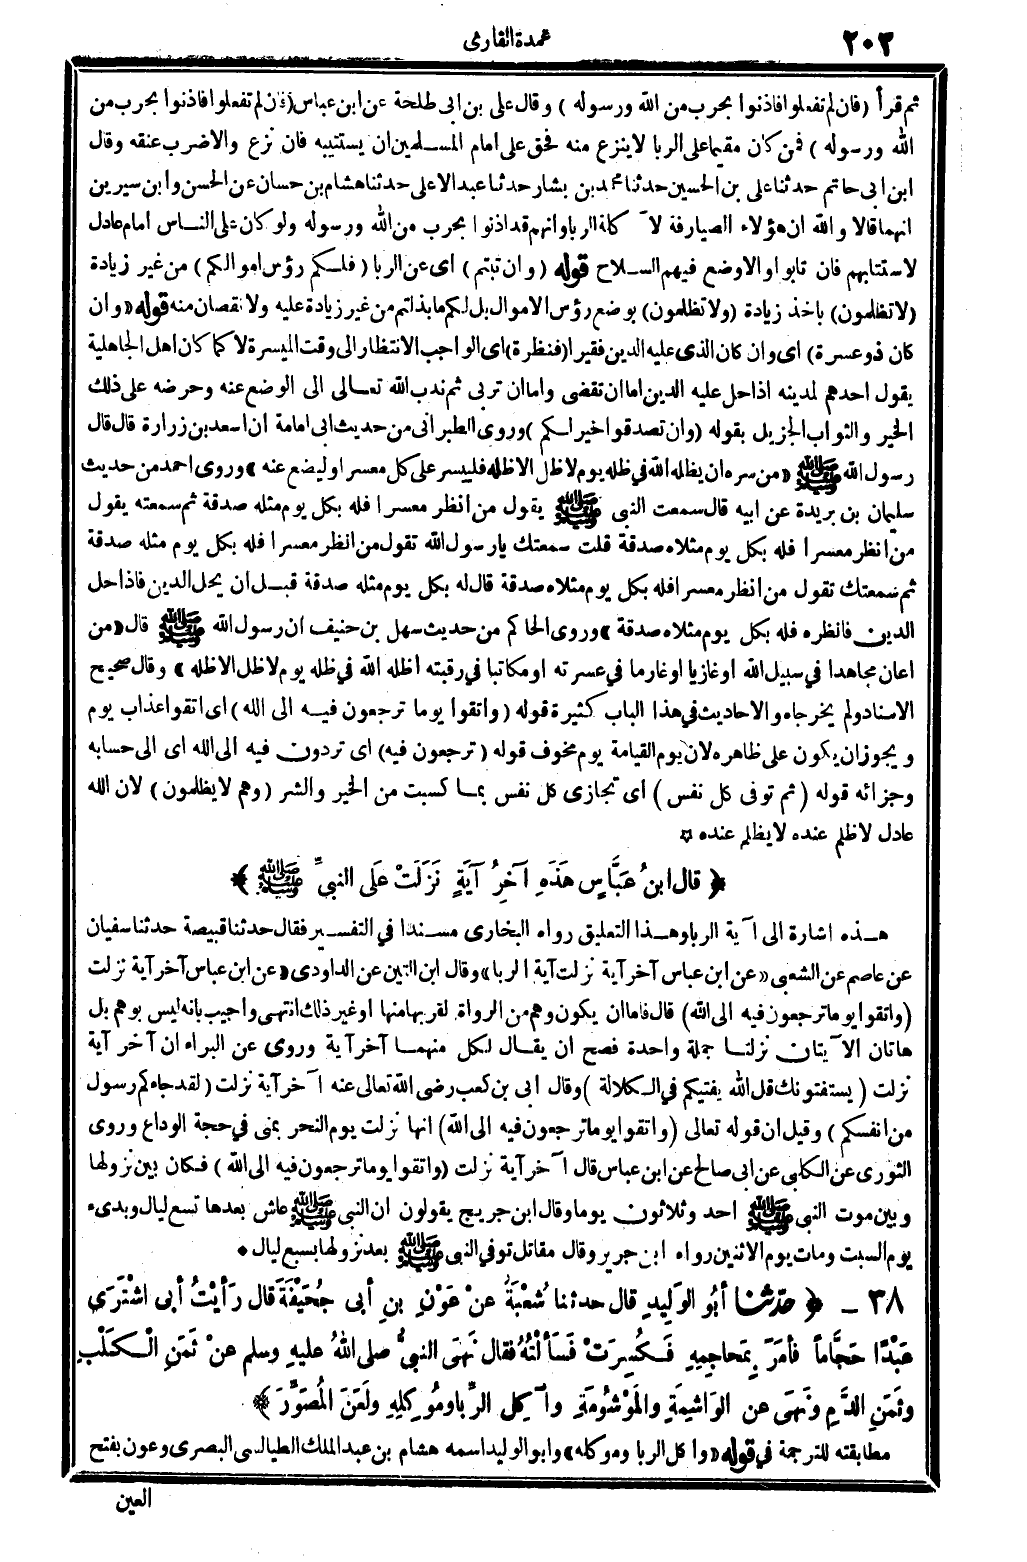 ٢٠٢
عمدة القارئ
ثم قرأ (فان لم تفعلوا فاذنوا بحرب من الله ورسوله) وقال على بن ابى طلحة عن ابن عباس (فان لم تفعلوا فاذنوا بحرب من
الله ورسوله) فمن كان مقيما على الربا لا ينزع منه فحق على امام المسلمين ان يستتيبه فان نزع والاضرب عنقه وقال
ابن ابى حاتم حدثنا على بن الحسين حدثنا محمد بن بشار حدثنا عبد الاعلى حدثنا هشام بن حسان عن الحسن وابن سيرين
انهما قالا والله ان هؤلاء الصيارفة لآ كلة الربا وانهم قد اذنوا بحرب من الله ورسوله ولو كان على الناس امام عادل
لاستتابهم فان تابوا والا وضع فيهم السلاح قوله (وان تبتم) اى عن الربا (فلكم رؤس اموالكم) من غير زيادة
(لا تظلمون) باخذ زيادة (ولا تظلمون) بوضع رؤس الاموال بل لكم ما بذلتم من غير زيادة عليه ولا نقصان منه قوله «وان
كان ذو عسرة) اى وان كان الذى عليه الدين فقيرا (فنظرة) اى الواجب الانتظار الى وقت الميسرة لا كما كان اهل الجاهلية
يقول احدهم لمدينه اذا حل عليه الدين اما ان تقضى واما ان تربى ثم ندب الله تعالى الى الوضع عنه وحرضه على ذلك
الخير والثواب الجزيل بقوله (وان تصدقوا خير لكم) وروى الطبرانى من حديث ابى امامة ان اسعد بن زرارة قال قال
رسول الله ﷺ «من سره ان يظله الله في ظله يوم لا ظل الا ظله فلييسر على كل معسر او ليضع عنه» وروى احمد من حديث
سليمان بن بريدة عن ابيه قال سمعت النبى ﷺ يقول من انظر معسرا فله بكل يوم مثله صدقة ثم سمعته يقول
من انظر معسرا فله بكل يوم مثلاه صدقة قلت سمعتك يا رسول الله تقول من انظر معسرا فله بكل يوم مثله صدقة
ثم سمعتك تقول من انظر معسرا فله بكل يوم مثلاه صدقة قال له بكل يوم مثله صدقة قبل ان يحل الدين فاذا حل
الدين فانظره فله بكل يوم مثلاه صدقة» وروى الحاكم من حديث سهل بن حنيف ان رسول الله ﷺ قال «من
اعان مجاهدا في سبيل الله او غازيا او غارما في عسرته او مكاتبا في رقبته اظله الله في ظله يوم لا ظل الا ظله» وقال صحيح
الاسناد ولم يخرجاه والاحاديث في هذا الباب كثيرة قوله (واتقوا يوما ترجعون فيه الى الله) اى اتقوا عذاب يوم
ويجوز ان يكون على ظاهره لان يوم القيامة يوم مخوف قوله (ترجعون فيه) اى تردون فيه الى الله اى الى حسابه
وجزائه قوله (ثم توفى كل نفس) اى تجازى كل نفس بما كسبت من الخير والشر (وهم لا يظلمون) لان الله
عادل لا ظلم عنده لا يظلم عنده ¤
﴿ قال ابنُ عَبَّاسٍ هَذَهِ آخِرُ آيَةٍ نَزَلَتْ عَلَى النبيِّ ﷺ ﴾
هذه اشارة الى آية الربا وهذا التعليق رواه البخارى مسندا في التفسير فقال حدثنا قبيصة حدثنا سفيان
عن عاصم عن الشعبى «عن ابن عباس آخر آية نزلت آية الربا» وقال ابن التين عن الداودى «عن ابن عباس آخر آية نزلت
(واتقوا يوما ترجعون فيه الى الله) قال فاما ان يكون وهم من الرواة لقربها منها او غير ذلك انتهى واجيب بانه ليس بوهم بل
هاتان الآيتان نزلتا جملة واحدة فصح ان يقال لكل منهما آخر آية وروى عن البراء ان آخر آية
نزلت (يستفتونك قل الله يفتيكم في الكلالة) وقال ابى بن كعب رضى الله تعالى عنه آخر آية نزلت (لقد جاءكم رسول
من انفسكم) وقيل ان قوله تعالى (واتقوا يوما ترجعون فيه الى الله) انها نزلت يوم النحر بمنى في حجة الوداع وروى
الثورى عن الكلبى عن ابى صالح عن ابن عباس قال آخر آية نزلت (واتقوا يوما ترجعون فيه الى الله) فكان بين نزولها
وبين موت النبى ﷺ احد وثلاثون يوما وقال ابن جريج يقولون ان النبى ﷺ عاش بعدها تسع ليال وبدىء
يوم السبت ومات يوم الاثنين رواه ابن جرير وقال مقاتل توفي النبى ﷺ بعد نزولها بسبع ليال •
٣٨ - ﴿ حدثنا أبُو الوَلِيدِ قال حدثنا شُعْبَةُ عنْ عَوْنِ بنِ أبى جُحَيْفَةَ قال رَأيْتُ أبى اشْتَرَى
عَبْدًا حَجَّاماً فأمَرَ بِمَحاجِمِهِ فَكُسِرَتْ فَسَألْتُهُ فقال نَهَى النبيُّ صلى اللهُ عليهِ وسلم عنْ ثَمَنِ الْكَلْبِ
وثَمَنِ الدَّمِ ونَهَى عنِ الوَاشِمَةِ والمَوْشُومَةِ وآكِلِ الرِّبا ومُوكِلِهِ ولَعَنَ المُصَوِّرَ ﴾
مطابقته للترجمة في قوله «وآكل الربا وموكله» وابو الوليد اسمه هشام بن عبد الملك الطيالسى البصرى وعون بفتح
العين